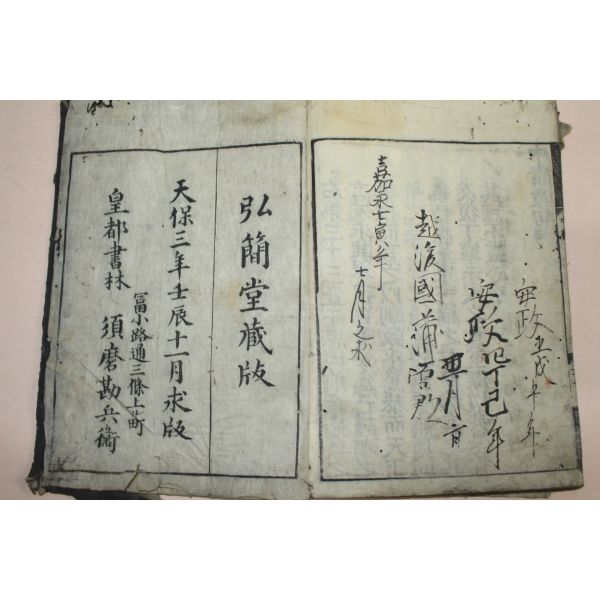 安政五戊午年
安政四丁巳年
越後國蒲原郡
嘉永七寅年
七月之求
弘簡堂藏版
天保三年壬辰十一月求版
冨小路通三條上町
皇都書林 須磨勘兵衛